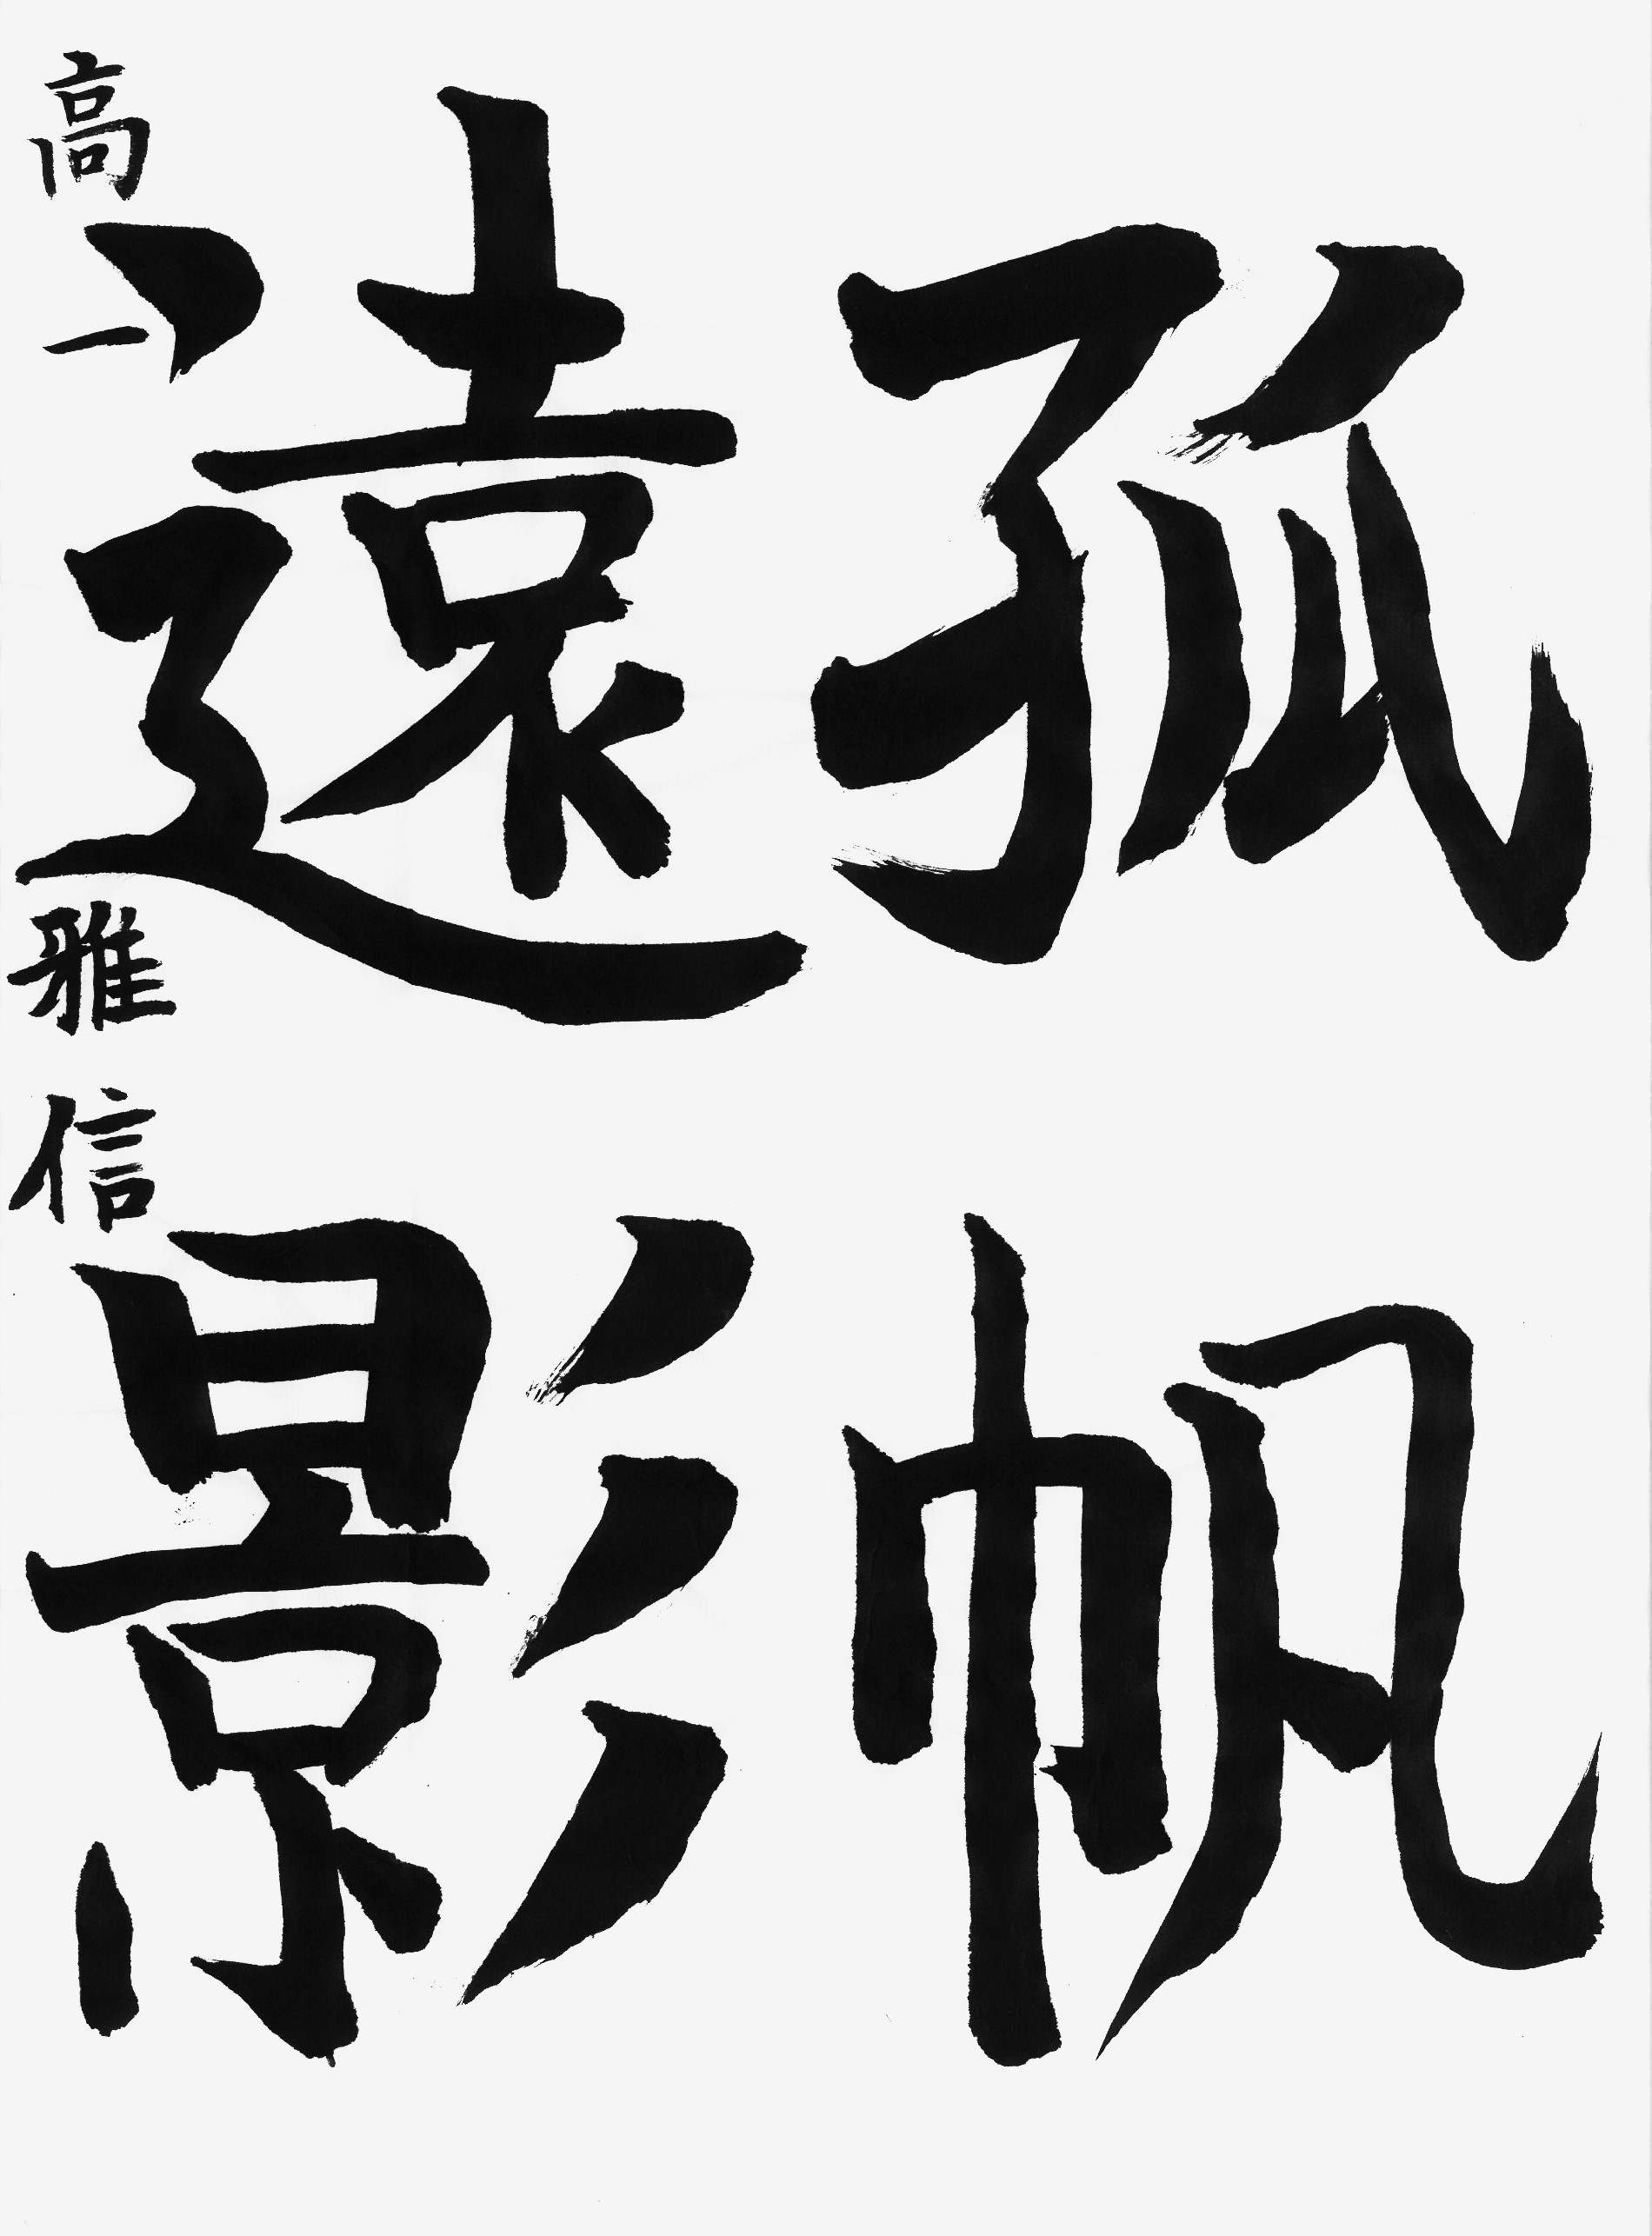 孤帆
遠影
高一 雅信